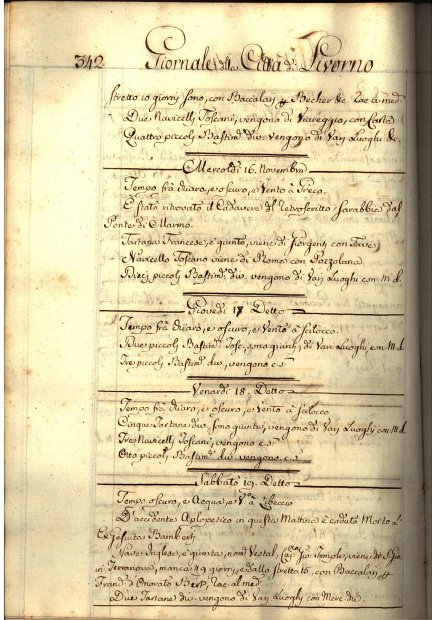 342 Giornale della Città di Livorno
stretto 10 giorni sono, con Baccalari Becher &c. rac. a med.
Due Navicelli Toscani, vengono di Viareggio, con Carta
Quattro piccoli Bastimti. div. vengono di Varj Luoghi &c.
Mercoldì 16. Novembre
Tempo frà chiaro, e oscuro, e Vento à Greco.
È stato ritrovato il Cadavere del Retroscritto dal
Ponte di Marmo.
Tartana Francese, è giunta, viene di con Fave
Navicello Toscano viene di Roma con Pozzolana
Dieci piccoli Bastimti. div. vengono di Varj Luoghi con M. d.
Giovedì 17 Detto
Tempo frà chiaro, e oscuro, e Vento à Scilocco.
Due piccoli Bastimti. Tosc. sono giunti, di Varj Luoghi, con M. d.
Tre piccoli Bastimti. div. vengono c. s.
Venardì 18. Detto
Tempo frà chiaro, e oscuro, e Vento à Scilocco
Cinque Tartane div. sono giunte, vengono di Varj Luoghi con M. d.
Tre Navicelli Toscani, vengono c. s.
Otto piccoli Bastimti. div. vengono c. s.
Sabbato 19. Detto
Tempo oscuro, e Acqua, e Vo. à Libeccio
D'accidente Aploplesico in questa Mattina è caduto Morto L'
Ex Gesuita Bamberti
Nave Inglese, è giunta, nomta. Vestal, Capo. Gio. Temple, viene di S. Gio.
in Terranova, manca 49 giorni, e dallo stretto 15, con Baccalari
Franco. d'Onorato Bert, rac. al med.
Due Tartane div. vengono di Varj Luoghi con Merc. div.